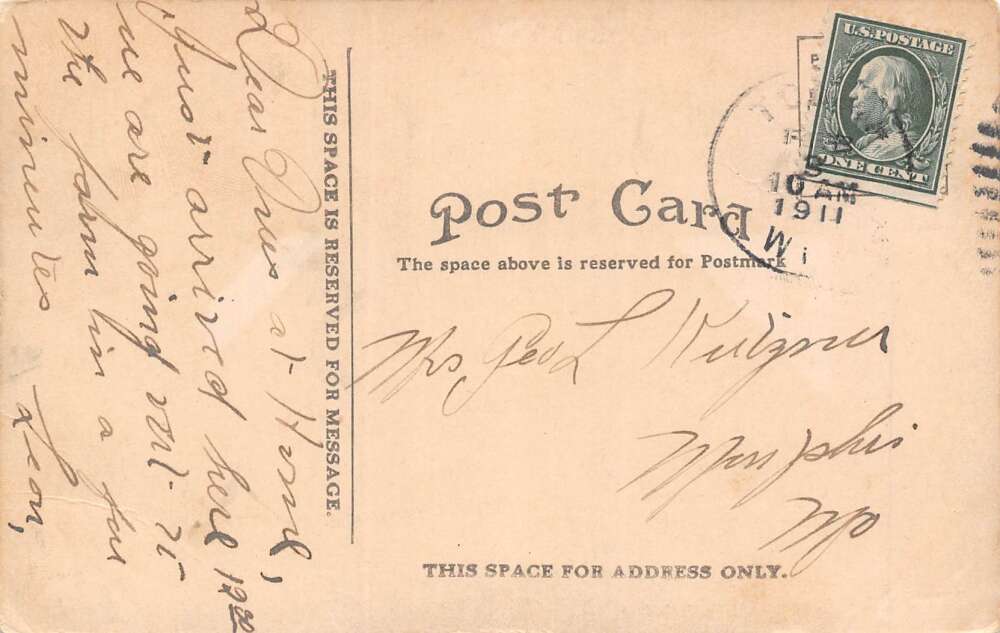 Dear Ones at Home,
Just arrived here 12 00
we are going out to
the farm in a few
minutes Leon,
THIS SPACE IS RESERVED FOR MESSAGE.
U.S. POSTAGE
ONE CENT
10 AM
1911
Post Card
The space above is reserved for Postmark
Mrs Geo L
Memphis
Mo
THIS SPACE FOR ADDRESS ONLY.